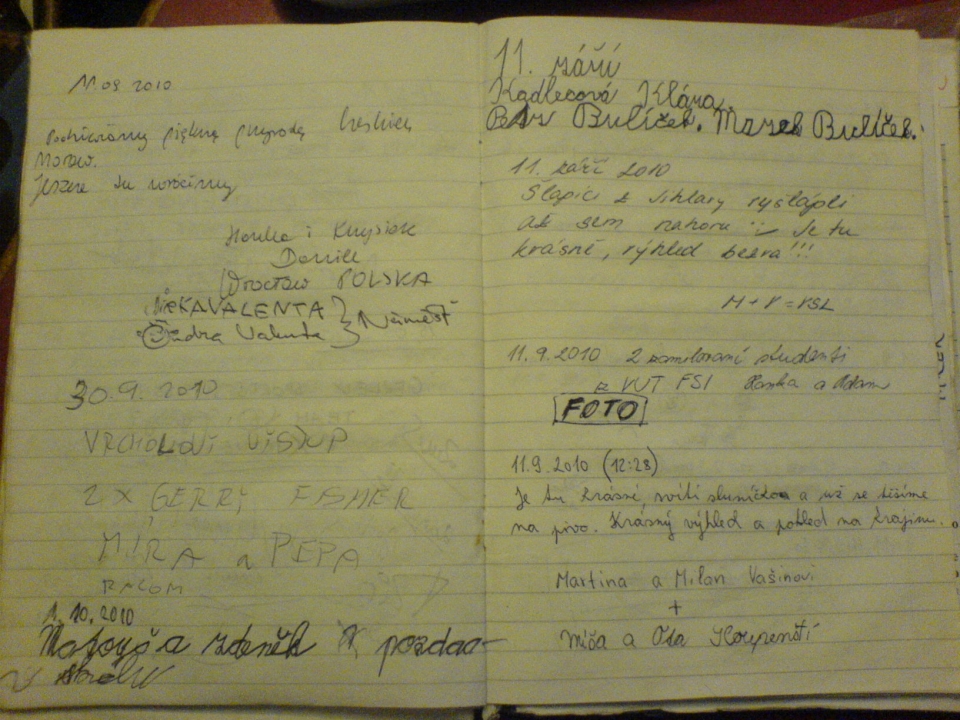 11.09 2010
Podziwiamy piękną przyrodę
Moraw.
Jeszcze tu wrócimy
i Krysiek
Daniel
Wrocław POLSKA
KAVALENTA
Ondra Valenta } Náměšť
30.9. 2010
VRCHOLOVÍ VÍSTUP
2 X GERRY FISHER
MÍRA a PEPA
1. 10. 2010
Matouš a zdeněk
11. září
Kadlecová Klára.
Bulíček. Marek Bulíček.
11. září 2010
Šlapici z Jihlavy vyšlápli
až sem nahoru Je tu
krásně, výhled bezva!!!
M + V = VSL
11.9.2010 2 zamilovaní studenti
z VUT FSI Hanka a Adam
FOTO
11.9 2010 (12:28)
Je tu krásně, svítí sluníčko a už se těšíme
na pivo. Krásný výhled a pohled na krajinu.
Martina a Milan Vašinovi
+
Míša a Ota